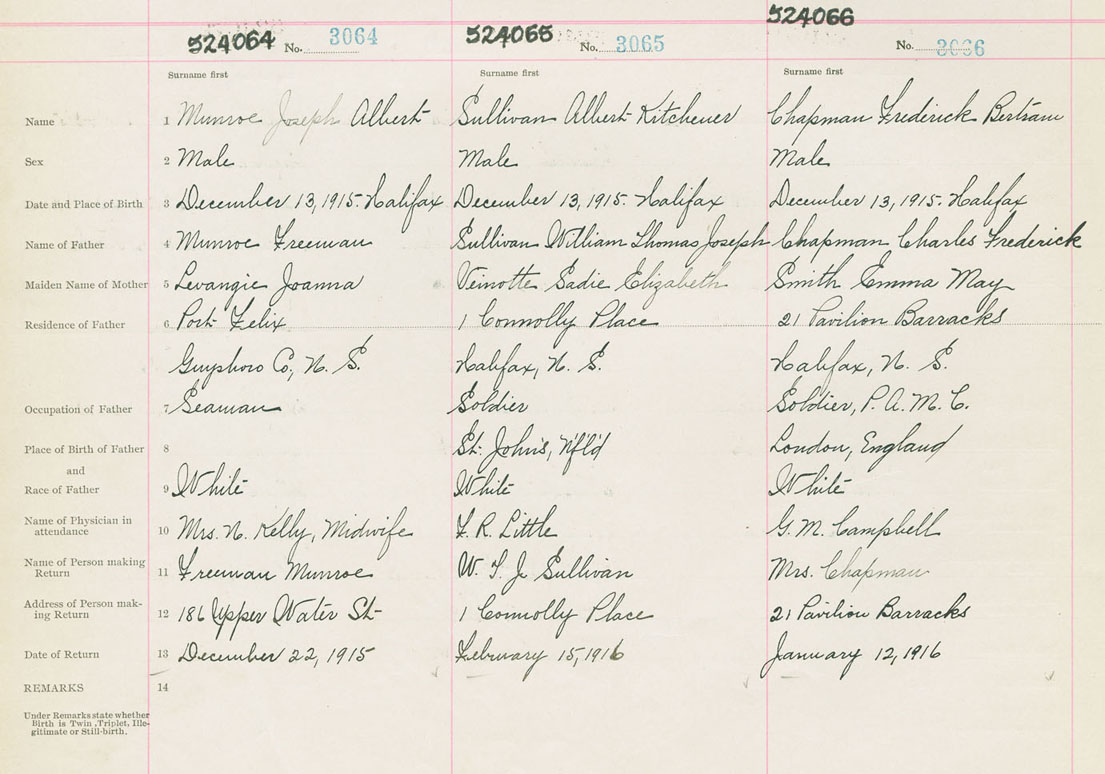 524064 No. 3064 524065 No. 3065 524066 No. 3066
Surname first Surname first Surname first
Name 1 Munroe Joseph Albert Sullivan Albert Kitchener Chapman Frederick Bertram
Sex 2 Male Male Male
Date and Place of Birth 3 December 13, 1915. Halifax December 13, 1915. Halifax December 13, 1915. Halifax
Name of Father 4 Munroe Freeman Sullivan William Thomas Joseph Chapman Charles Frederick
Maiden Name of Mother 5 Levangie Joanna Veinotte Sadie Elizabeth Smith Emma May
Residence of Father 6 Port Felix 1 Connolly Place 21 Pavilion Barracks
Guysboro Co, N. S. Halifax, N. S. Halifax, N. S.
Occupation of Father 7 Seaman Soldier Soldier, P. A. M. C.
Place of Birth of Father 8 St. John's, Nf'l'd London, England
and
Race of Father 9 White White White
Name of Physician in
attendance 10 Mrs. N. Kelly, Midwife F. R. Little G. M. Campbell
Name of Person making
Return 11 Freeman Munroe W. T. J. Sullivan Mrs. Chapman
Address of Person mak-
ing Return 12 186 Upper Water St 1 Connolly Place 21 Pavilion Barracks
Date of Return 13 December 22, 1915 February 15, 1916 January 12, 1916
REMARKS 14
Under Remarks state whether
Birth is Twin, Triplet, Ille-
gitimate or Still-birth.